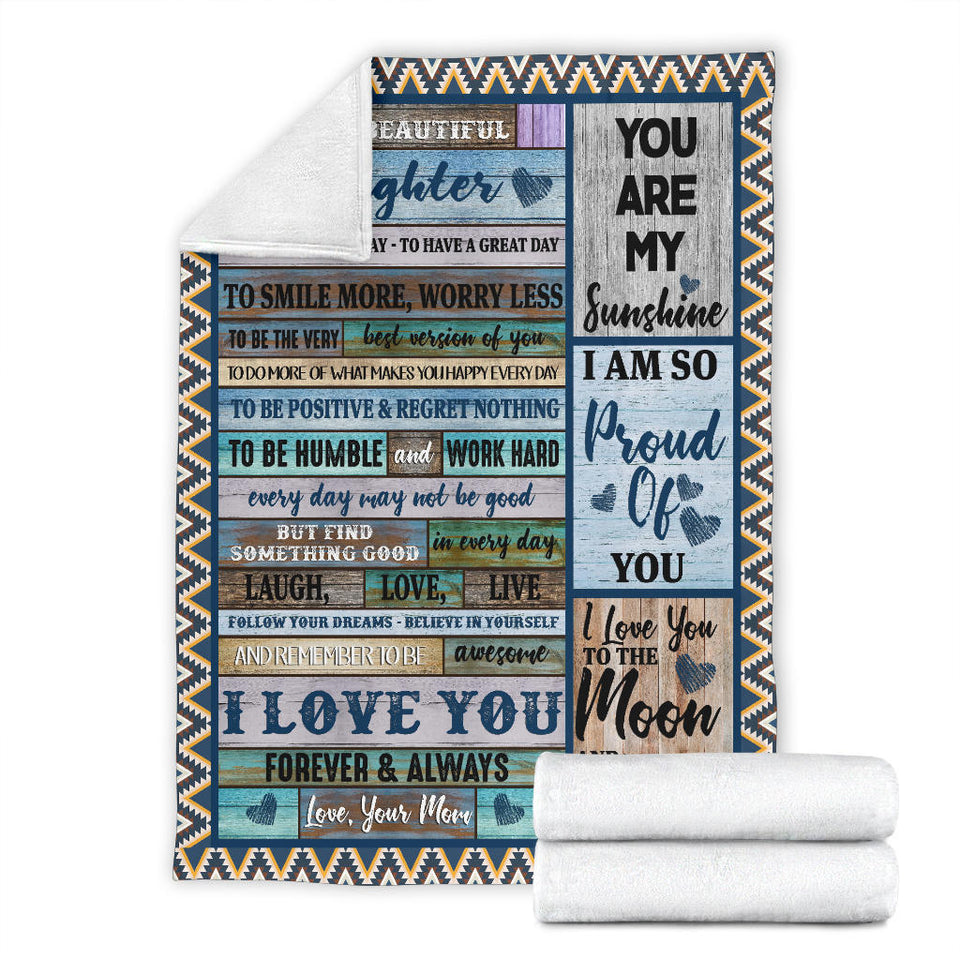 BEAUTIFUL
- TO HAVE A GREAT DAY
TO SMILE MORE, WORRY LESS
TO BE THE VERY best version of you
TO DO MORE OF WHAT MAKES YOU HAPPY EVERY DAY
TO BE POSITIVE & REGRET NOTHING
TO BE HUMBLE and WORK HARD
every day may not be good
BUT FIND
SOMETHING GOOD in every day
LAUGH, LOVE, LIVE
FOLLOW YOUR DREAMS - BELIEVE IN YOURSELF
AND REMEMBER TO BE awesome
I LOVE YOU
FOREVER & ALWAYS
Love, Your Mom
YOU
ARE
MY
Sunshine
I AM SO
Proud
Of
YOU
I Love You
TO THE
Moon
AND